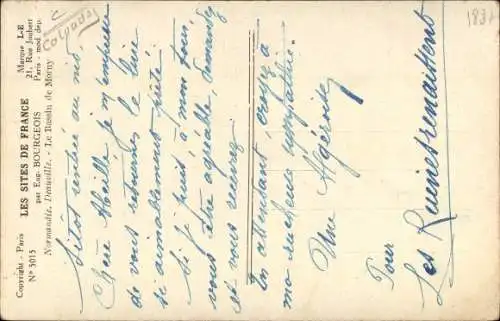 Calvados
183
Copyright - Paris
N° 5015
LES SITES DE FRANCE
par Eug. BOURGEOIS
Normandie. Deauville. - Le Bassin de Morny
Marque L-E
21, Rue Joubert
Paris - mod. dép.
Sitôt rentrée au nid,
Chère Abeille je m'empresse
de vous retourner le livre
si aimablement prêté
Si je puis, à mon tour,
vous être agréable, demandez
et vous recevrez
En attendant, croyez à
ma sympathie.
Une Algéroise
Pour
Les Ruines renaissent